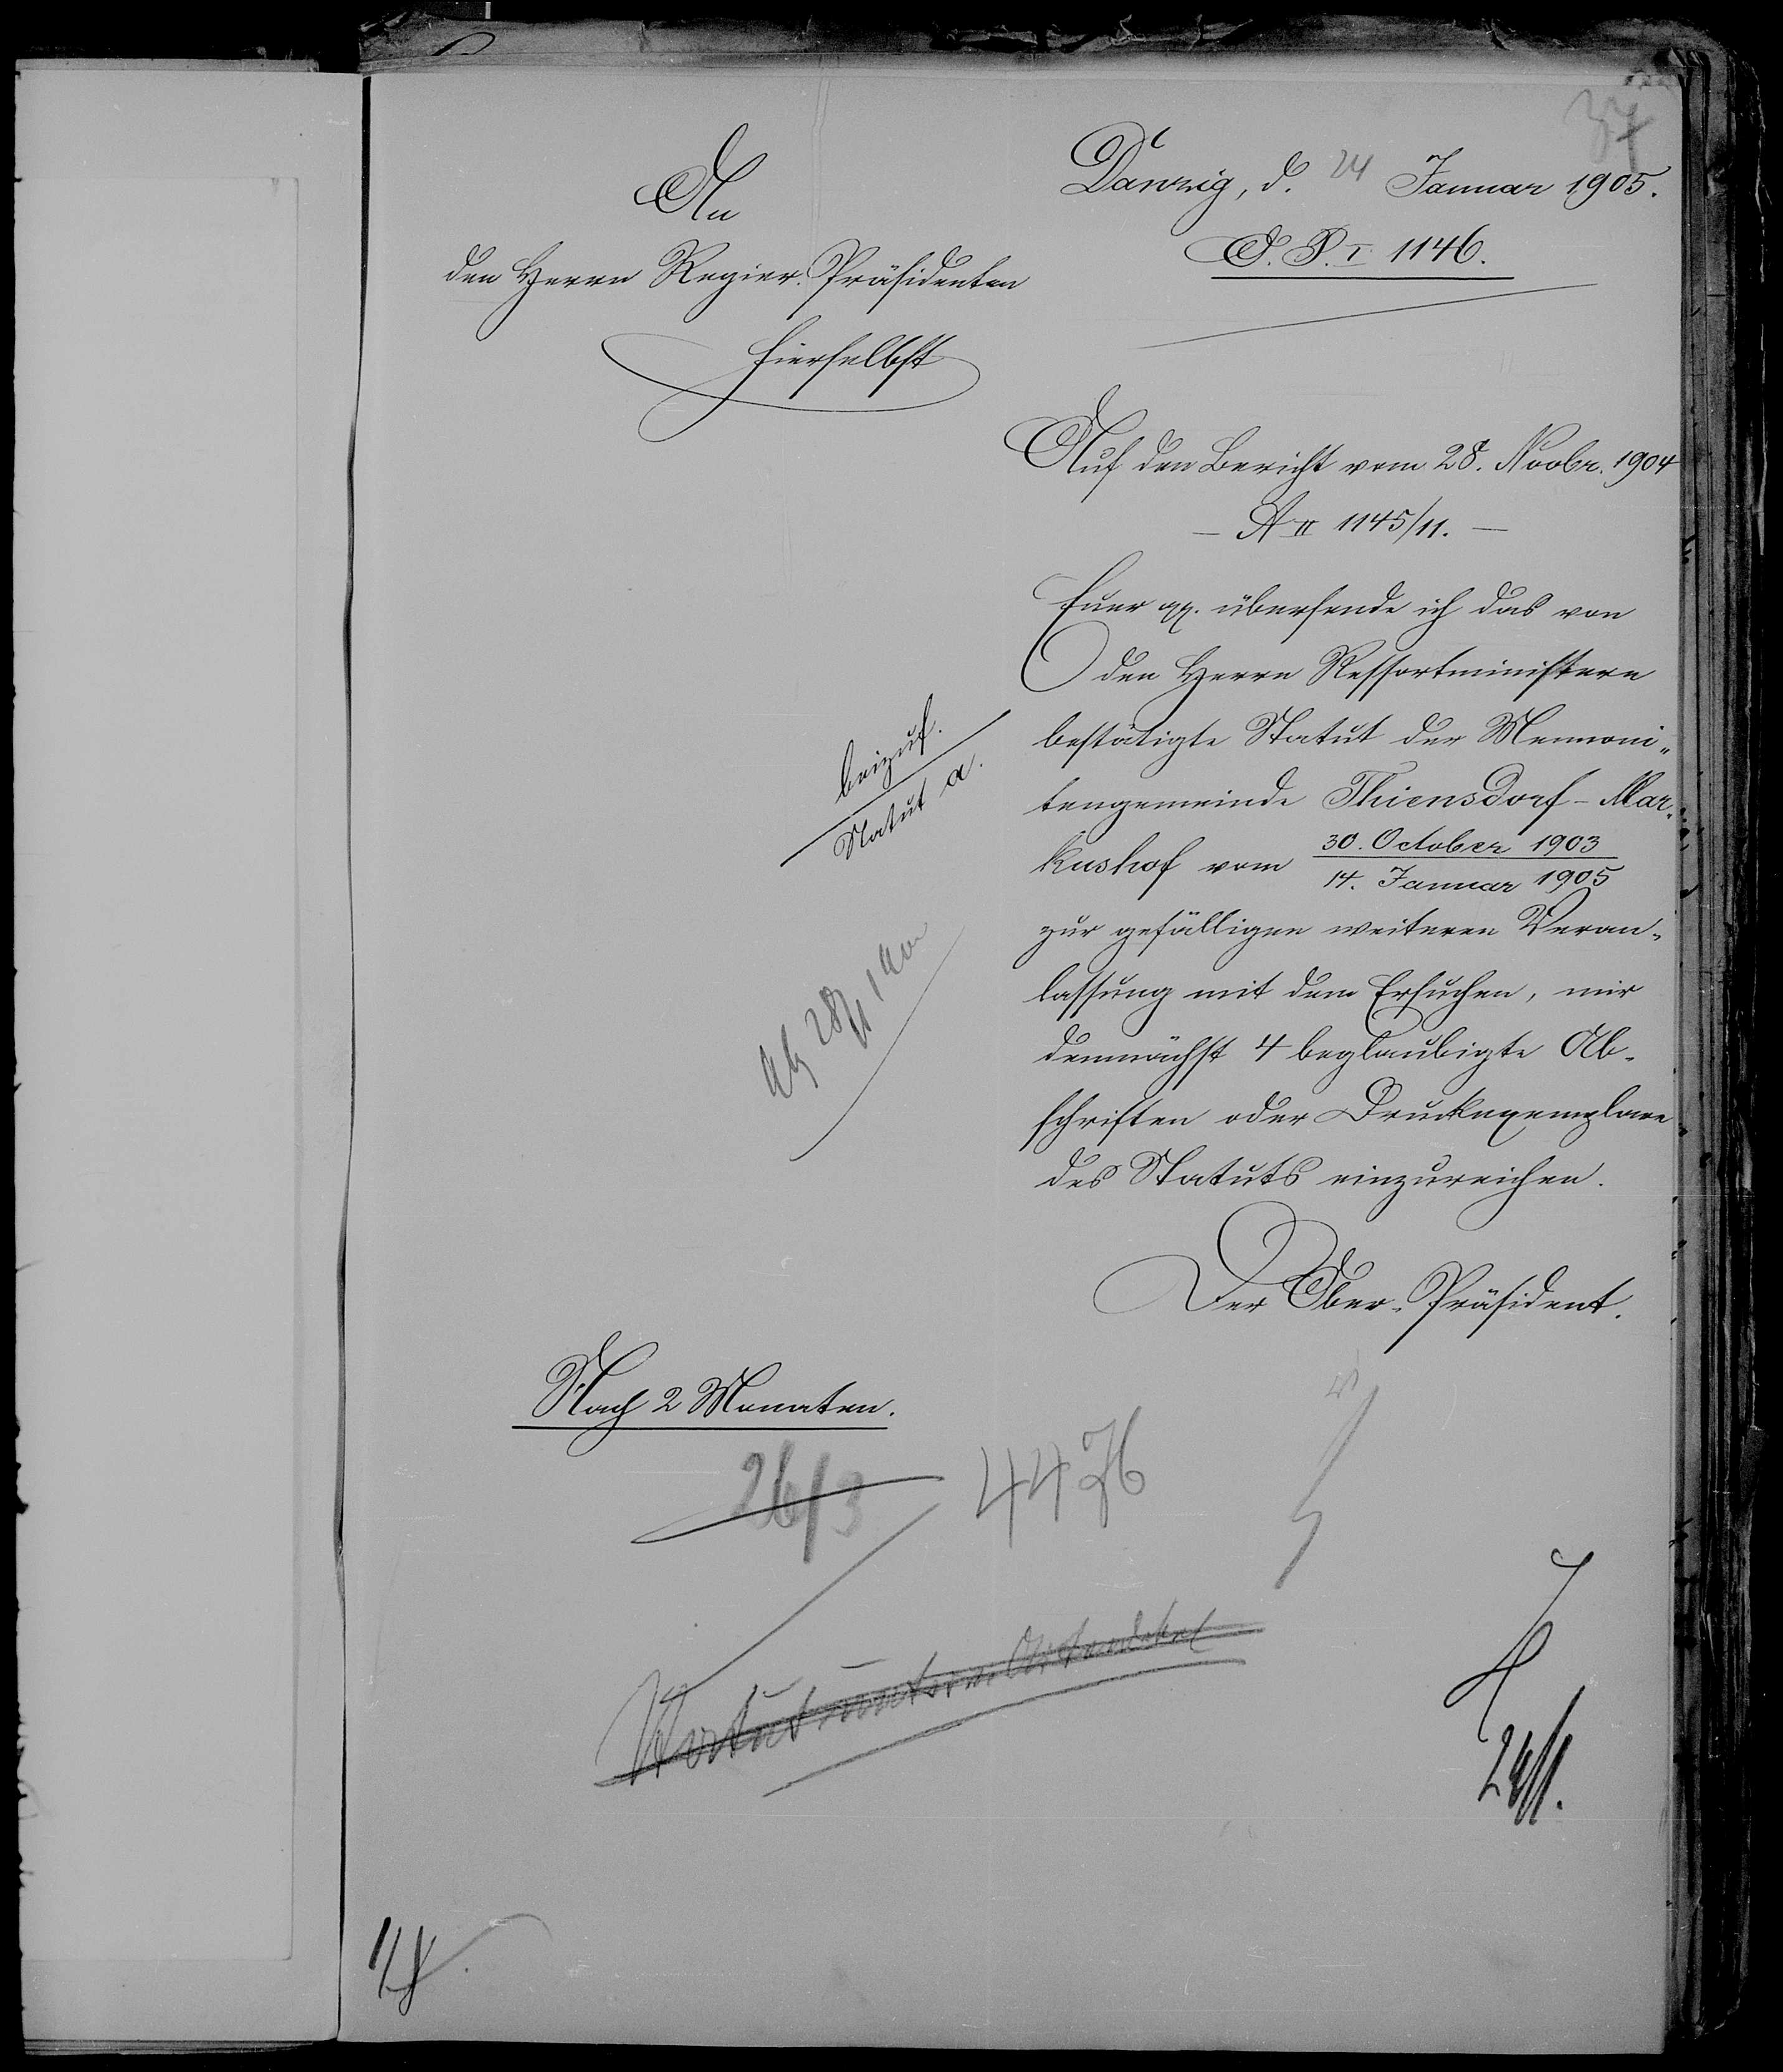 37
Danzig, d. 24 Januar 1905.
O. P. I 1146.
An
den Herrn Regier. Präsidenten
hierselbst
Auf den Bericht vom 28. Novbr. 1904
- A II 1145/11. -
Euer pp. übersende ich das von
den Herrn Ressortministern
bestätigte Statut der Mennoni„
tengemeinde Thiensdorf-Mar„
kushof vom 30. October 1903
14. Januar 1905
zur gefälligen weiteren Veran„
lassung mit dem Ersuchen, mir
demnächst 4 beglaubigte Ab„
schriften oder Druckexemplare
des Statuts einzureichen.
Der Ober-Präsident.
beizuf.
Statut a.
ab 28/1
Nach 2 Monaten.
26/3
4476
24/1.